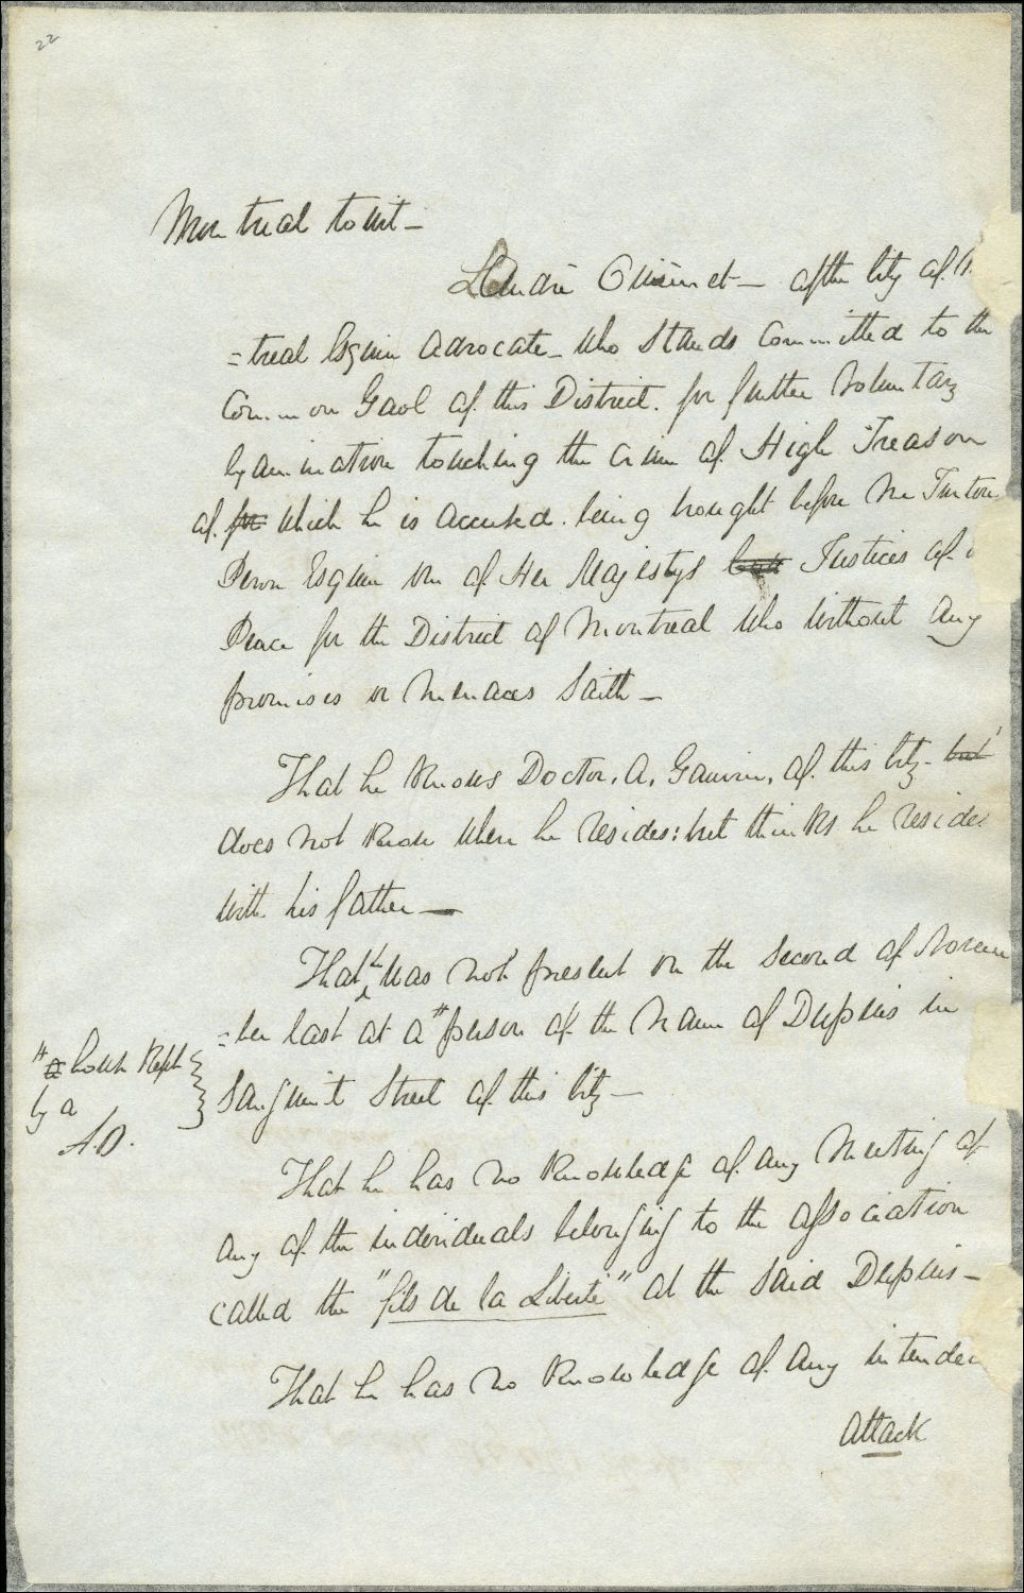 22
Montreal to wit –
André Ouimet – of the City of
=treal Esquire Advocate – who stands Committed to the
Common Gaol of this District. for further Voluntary
Examination touching the crime of High Treason
of for which he is accused. being brought before me Turton
Penn Esquire one of Her Majestys Justices of
Peace for the District of Montreal who without any
promises or menaces Saith –
That he knows Doctor. A. Gauvin, of this City – but
does not know where he resides: but thinks he resides
with his father –
That he was not present on the second of Novem
=ber last at a # person of the name of Dupuis in
# a house kept
by a
A.O.
Sanguinet Street of this City –
That he has no knowledge of any meeting of
any of the individuals belonging to the association
called the "fils de la Liberté" at the said Dupuis –
That he has no knowledge of any intended
Attack